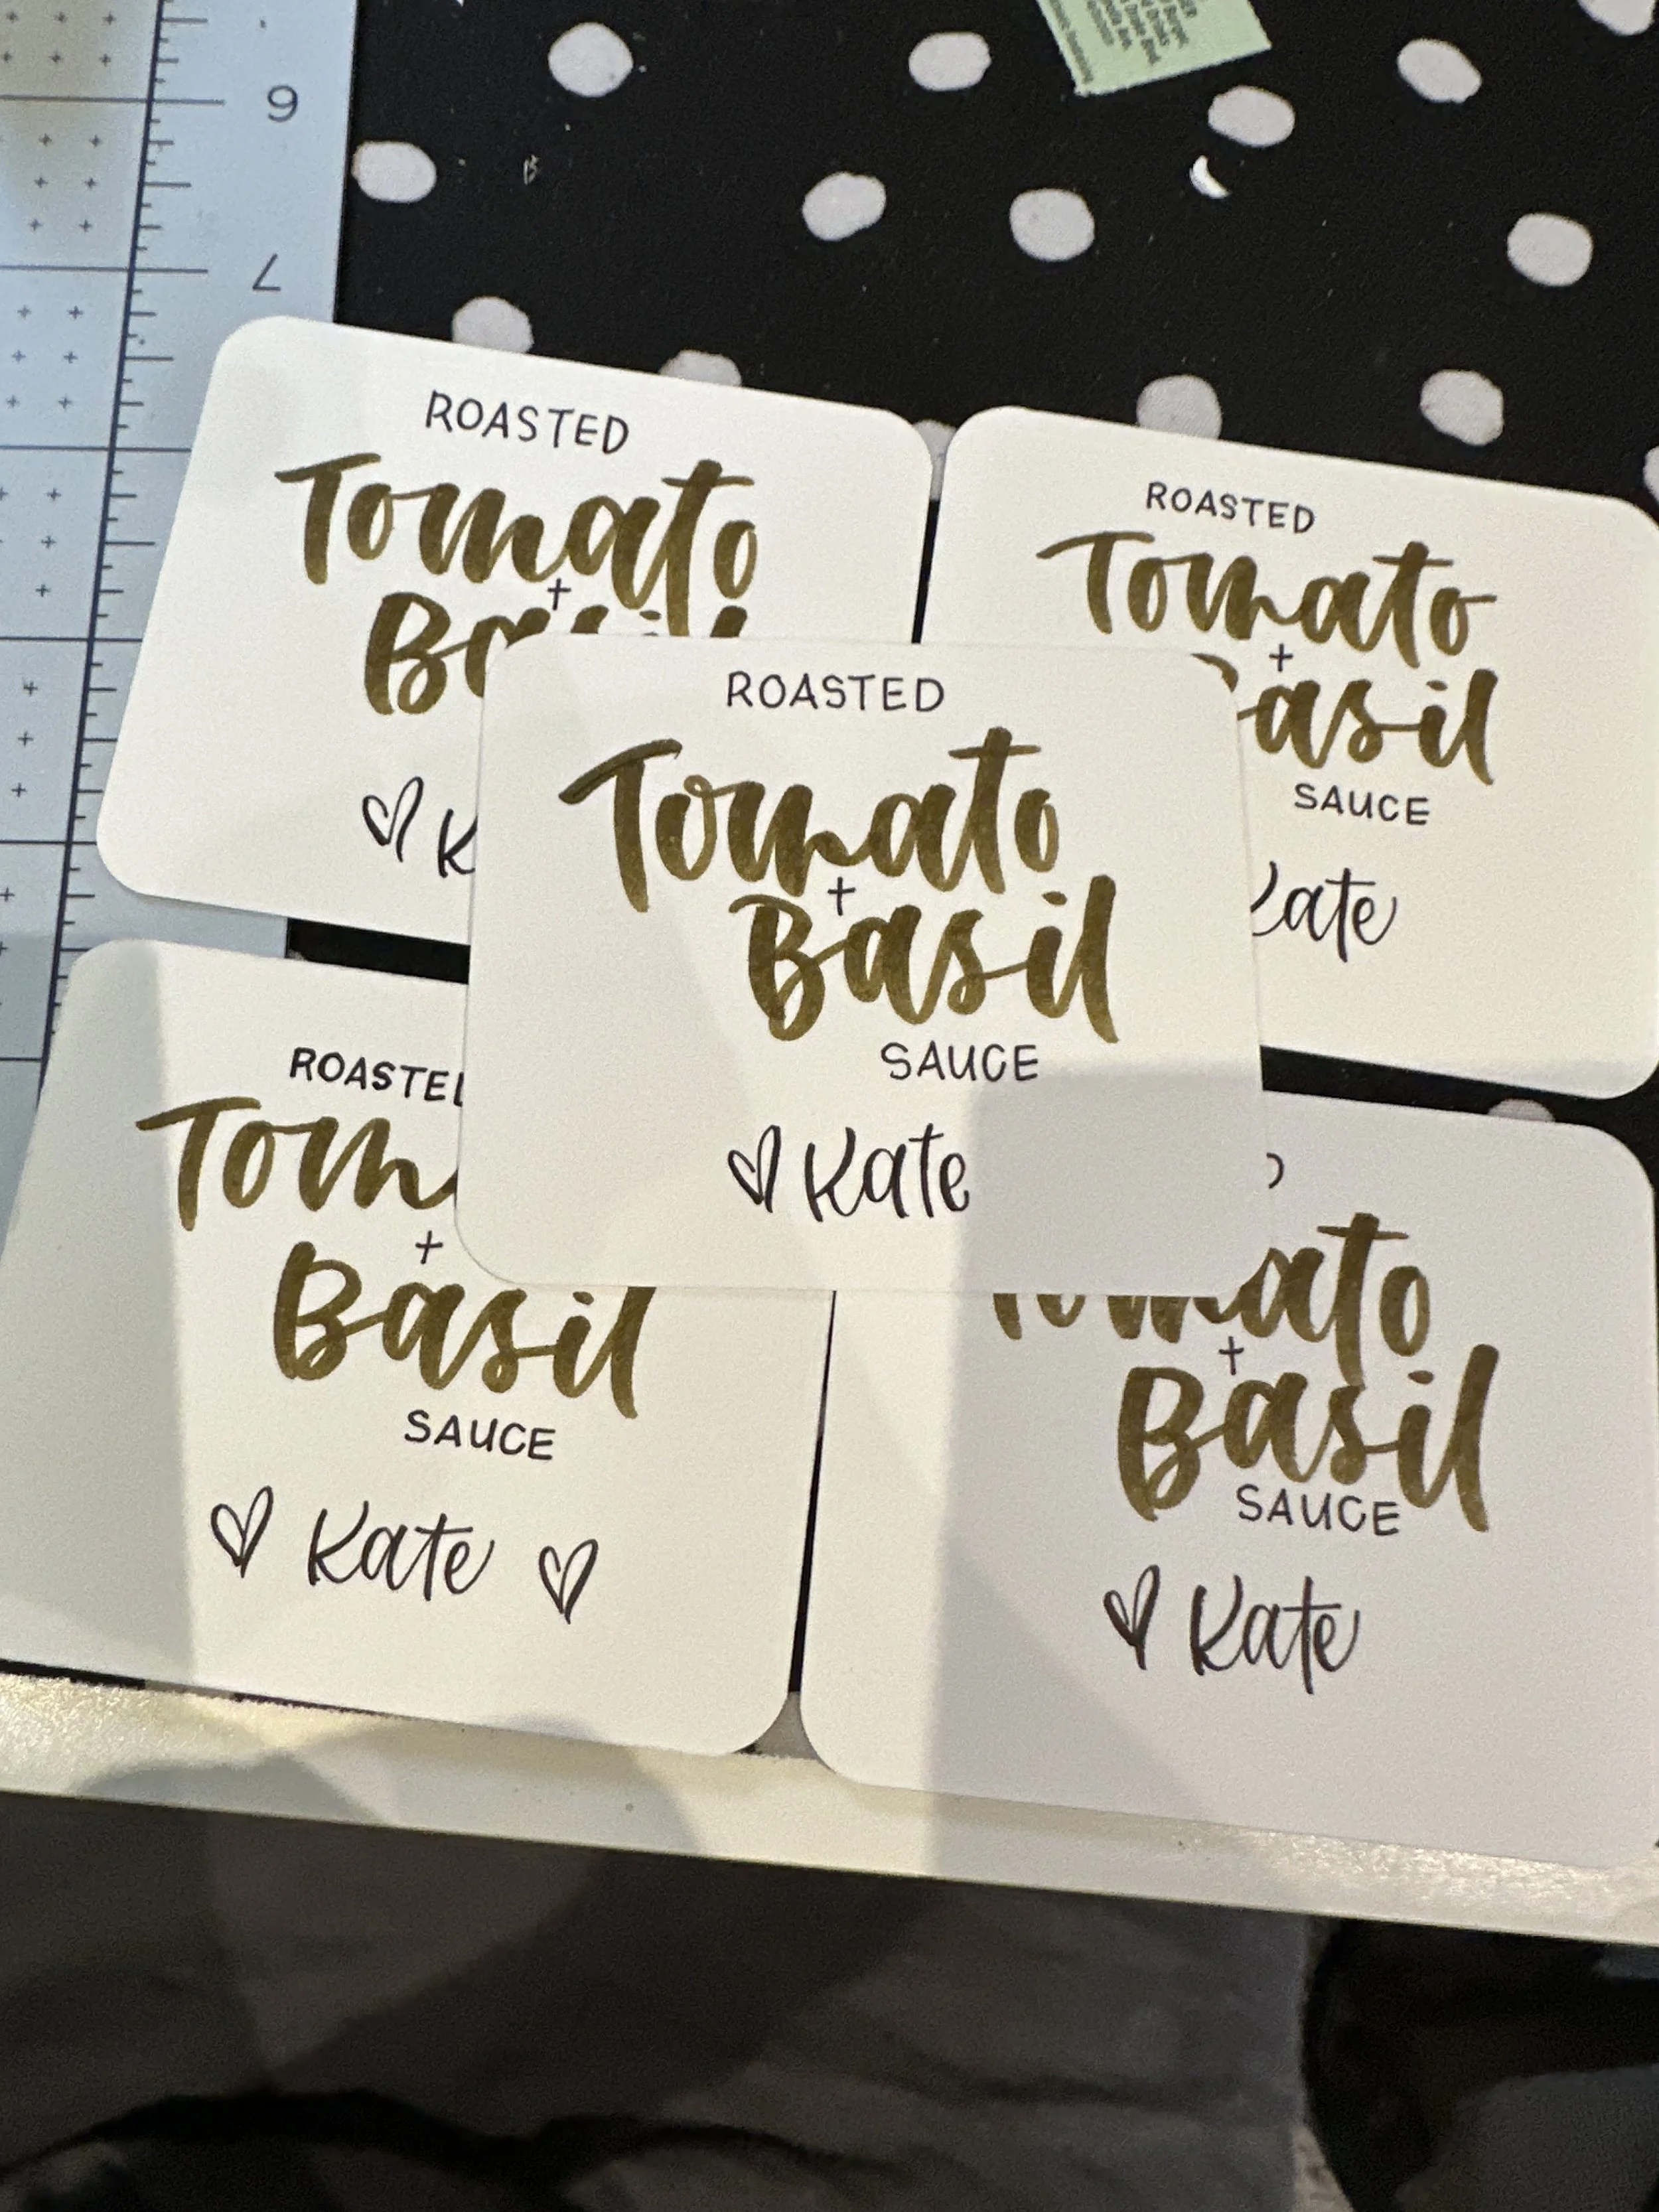 6
7
ROASTED
Tomato
+
♡ K
ROASTED
Tomato
+
asil
SAUCE
Kate
ROASTED
Tomato
+
Basil
SAUCE
♡ Kate
ROASTE
Tom
+
Basil
SAUCE
♡ Kate ♡
Tomato
+
Basil
SAUCE
♡ Kate